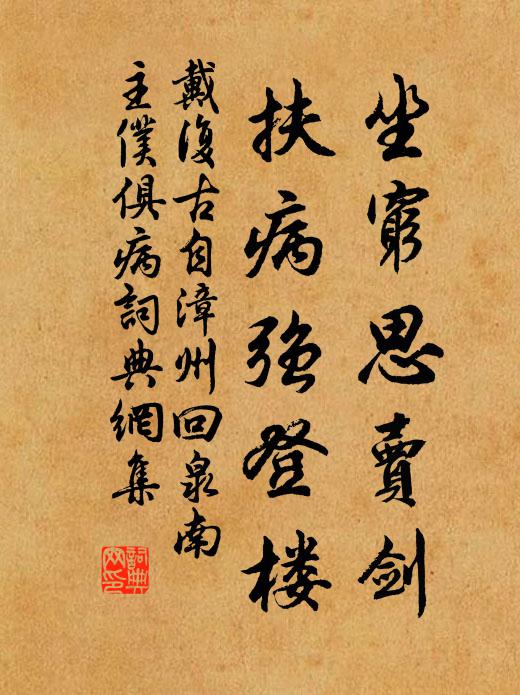 坐窮思賣劍
扶病强登楼
戴復古自漳州回泉南
主僕俱病詞典網集
詞典网印